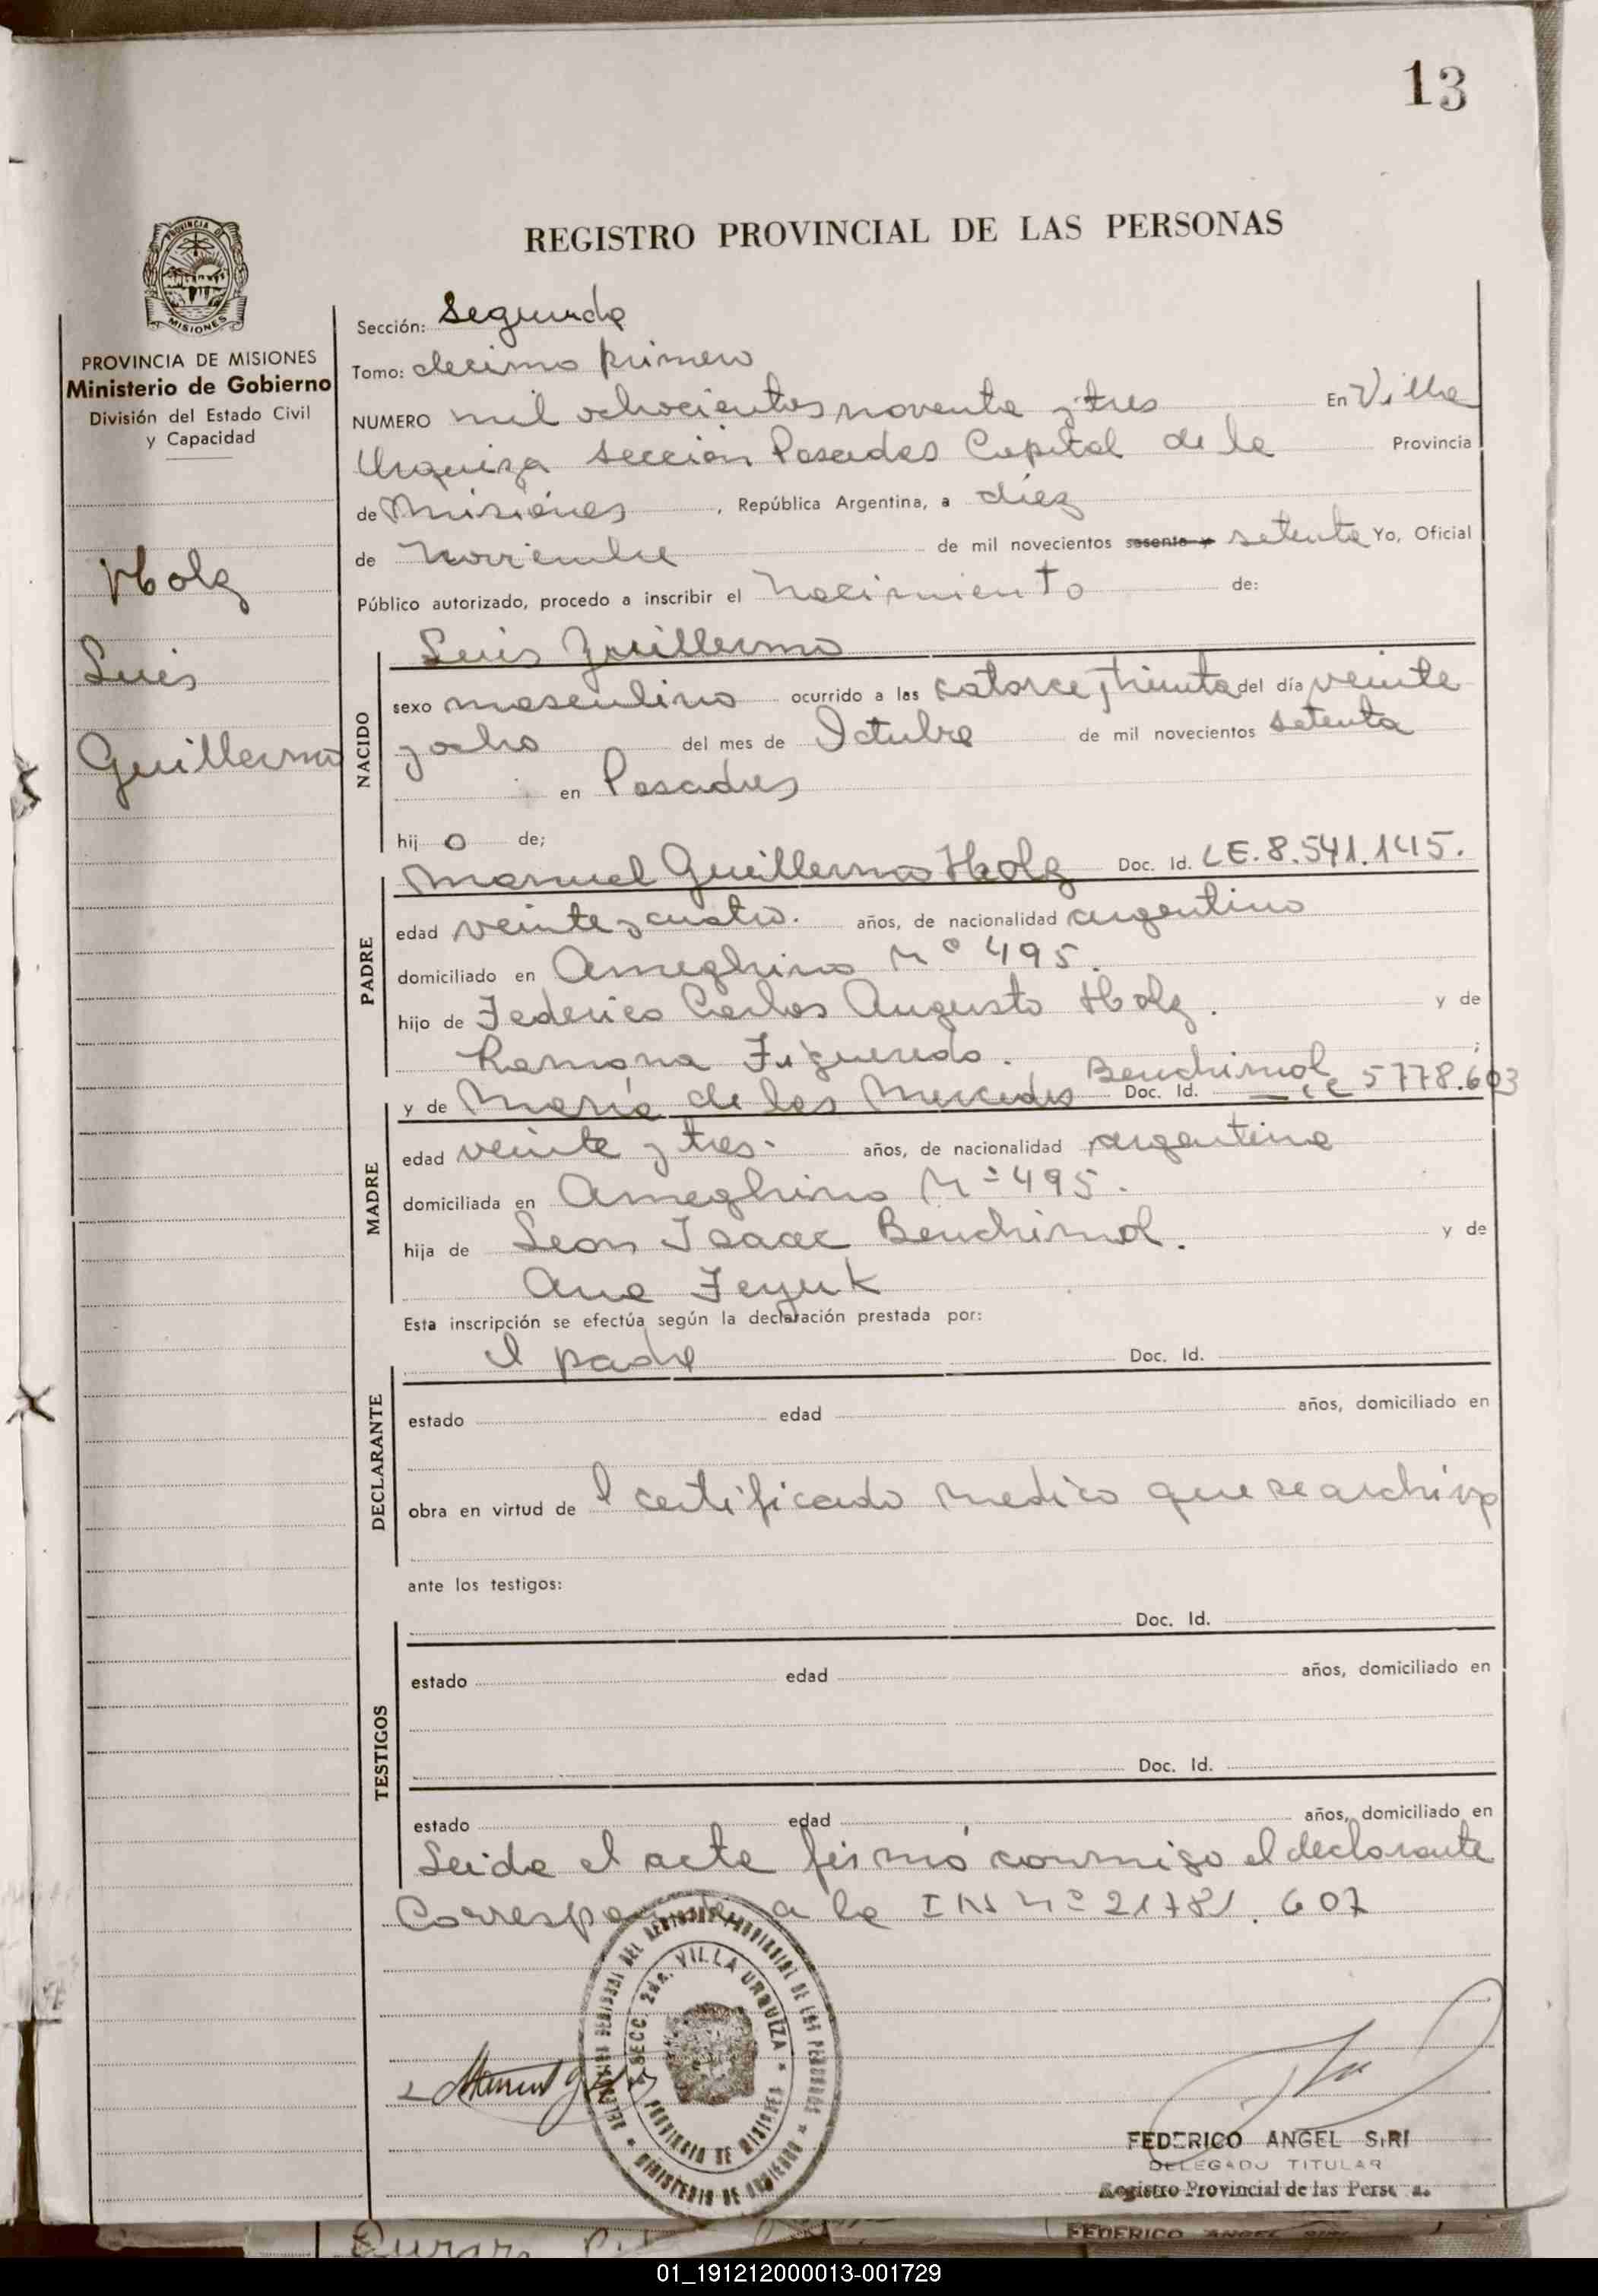 13
REGISTRO PROVINCIAL DE LAS PERSONAS
PROVINCIA DE MISIONES
MISIONES
PROVINCIA DE MISIONES
Ministerio de Gobierno
División del Estado Civil
y Capacidad
Holz
Luis
Guillermo
Sección: Segunda
Tomo: decimo primero
NUMERO mil ochocientos noventa y tres En Villa
Urquiza sección Posadas Capital de la Provincia
de Misiones, República Argentina, a diez
de noviembre de mil novecientos sesenta y setenta Yo, Oficial
Público autorizado, procedo a inscribir el nacimiento de:
NACIDO
Luis Guillermo
sexo masculino ocurrido a las catorce y treinta del día veinte
y ocho del mes de Octubre de mil novecientos setenta
en Posadas
hijo de;
PADRE
Manuel Guillermo Holz Doc. Id. LE. 8.541.145.
edad veinte y cuatro. años, de nacionalidad argentino
domiciliado en Ameghino Nº 495.
hijo de Federico Carlos Augusto Holz. y de
Ramona Figueredo. ;
MADRE
y de María de las Mercedes Benchimol Doc. Id. LC 5778.603
edad veinte y tres. años, de nacionalidad argentina
domiciliada en Ameghino Nº 495.
hija de Leon Isaac Benchimol. y de
Ana Feyuk
Esta inscripción se efectúa según la declaración prestada por:
DECLARANTE
el padre Doc. Id.
estado edad años, domiciliado en
obra en virtud de l certificado medico que se archiva
ante los testigos:
TESTIGOS
Doc. Id.
estado edad años, domiciliado en
Doc. Id.
estado edad años, domiciliado en
Leida el acta firmó conmigo el declarante
Corresponde a la IN Nº 21781.607
SECC. 2da. VILLA URQUIZA
PROVINCIA DE MISIONES
MINISTERIO DE GOBIERNO
FEDERICO ANGEL SIRI
DELEGADO TITULAR
Registro Provincial de las Perso as.
FEDERICO ANGEL
01_191212000013-001729